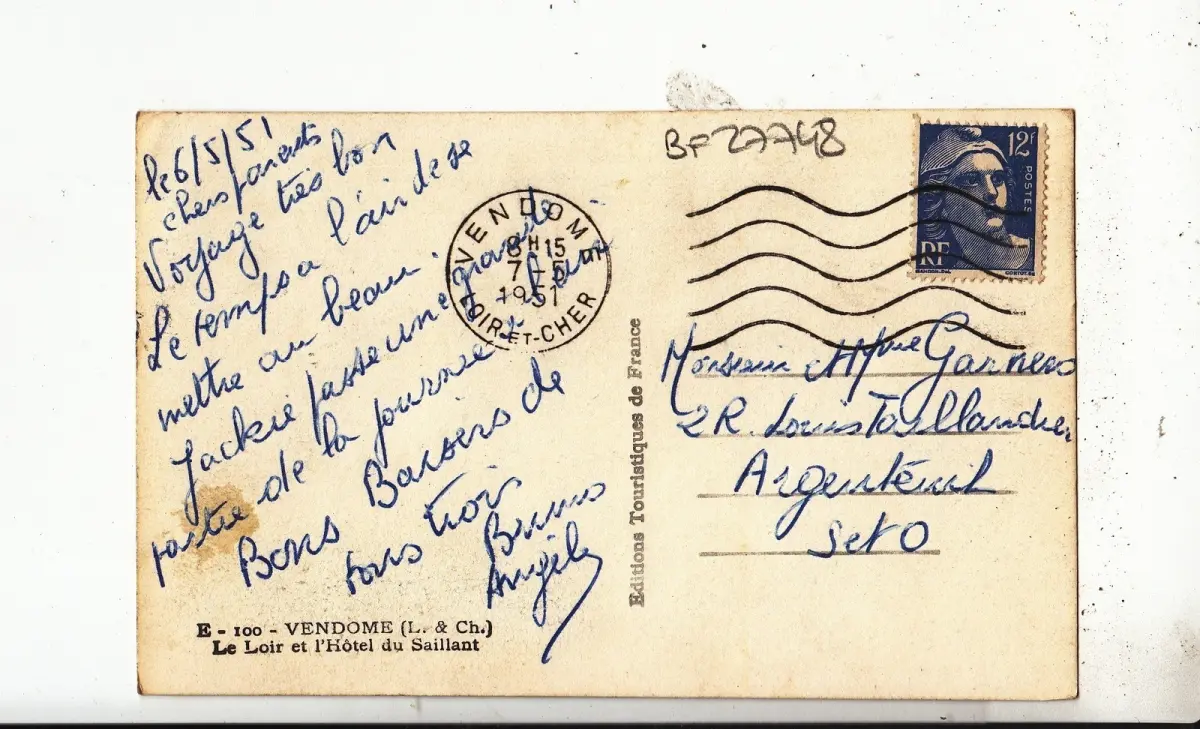 le 6/5/51
chers parents
Voyage très bon
Le temps a l'air de se
mettre au beau.
Jackie passe une grande
partie de la journée
Bons Baisers de
tous trois
Bruno
Angèle
E - 100 - VENDOME (L. & Ch.)
Le Loir et l'Hôtel du Saillant
VENDOME
8H15
7-5
1951
LOIR-ET-CHER
Editions Touristiques de France
BF 27748
12F
POSTES
RF
Monsieur Mme Garnero
2 R. Louis Taillandier
Argenteuil
S et O